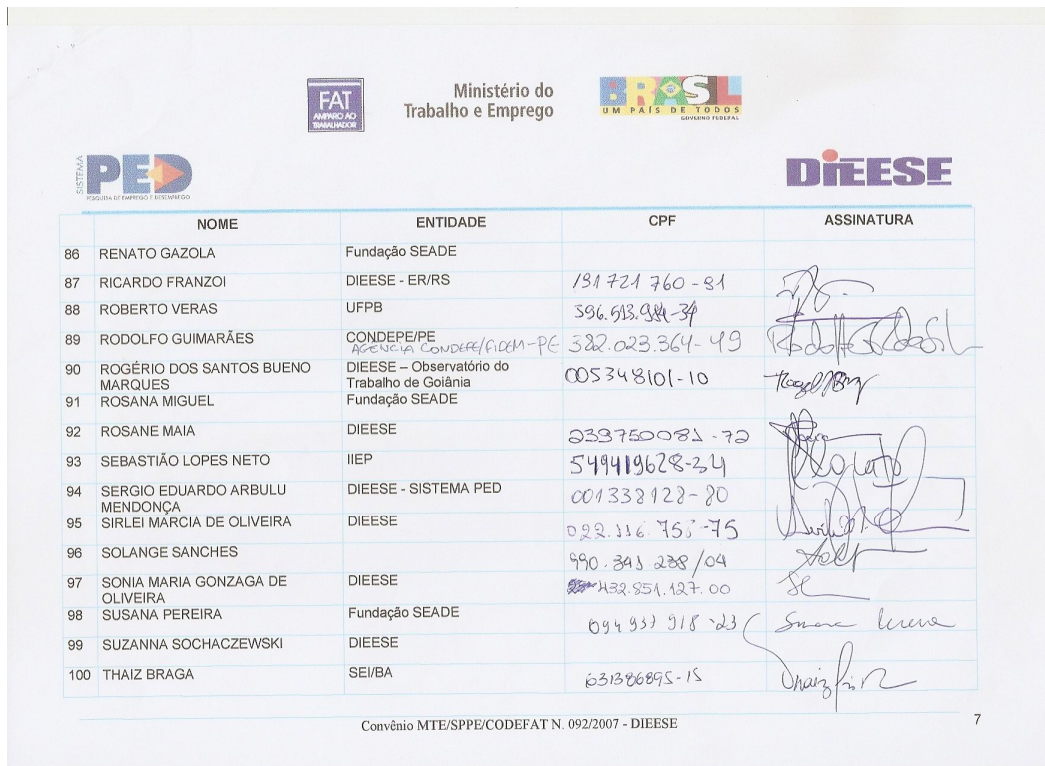 FAT
AMPARO AO
TRABALHADOR
Ministério do
Trabalho e Emprego
BRASIL
UM PAÍS DE TODOS
GOVERNO FEDERAL
SISTEMA
PED
PESQUISA DE EMPREGO E DESEMPREGO
DIEESE
NOME ENTIDADE CPF ASSINATURA
86 RENATO GAZOLA Fundação SEADE
87 RICARDO FRANZOI DIEESE - ER/RS 191 721 760 - 91
88 ROBERTO VERAS UFPB 396.513.984-34
89 RODOLFO GUIMARÃES CONDEPE/PE
AGÊNCIA CONDEPE/FIDEM-PE 382.023.364-49
90 ROGÉRIO DOS SANTOS BUENO DIEESE – Observatório do
MARQUES Trabalho de Goiânia 005348101-10
91 ROSANA MIGUEL Fundação SEADE
92 ROSANE MAIA DIEESE 239750081-72
93 SEBASTIÃO LOPES NETO IIEP 549419628-34
94 SERGIO EDUARDO ARBULU DIEESE - SISTEMA PED 001338128-80
MENDONÇA
95 SIRLEI MÁRCIA DE OLIVEIRA DIEESE
96 SOLANGE SANCHES 990.341 238/04
97 SONIA MARIA GONZAGA DE DIEESE 432.851.127.00
OLIVEIRA
98 SUSANA PEREIRA Fundação SEADE 094 937 918-23
99 SUZANNA SOCHACZEWSKI DIEESE
100 THAIZ BRAGA SEI/BA 631386895-15
Convênio MTE/SPPE/CODEFAT N. 092/2007 - DIEESE
7